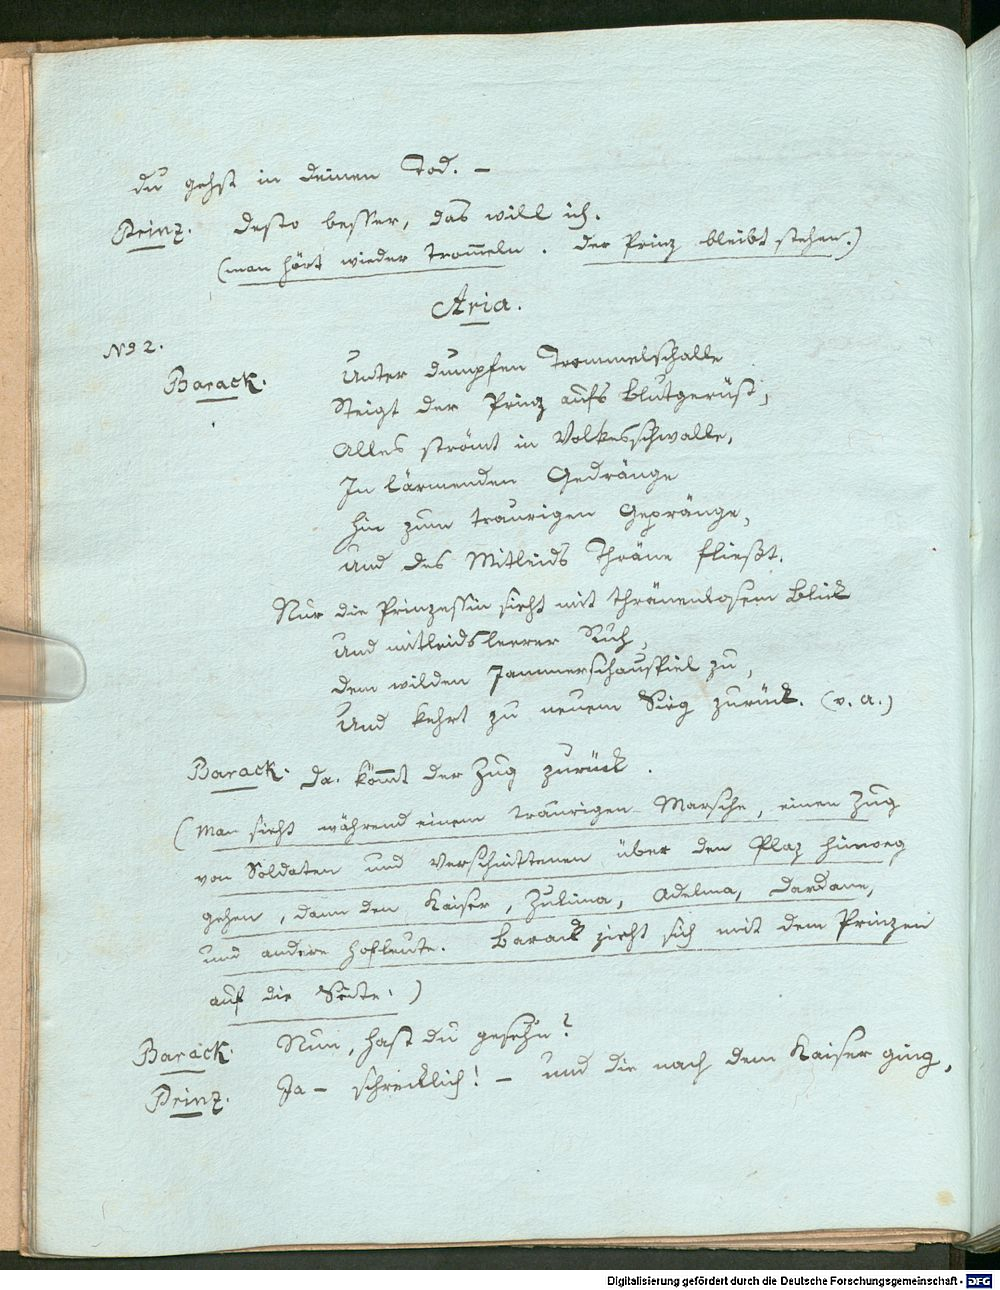 du gehst in deinen Tod. –
Prinz. desto besser, das will ich.
(man hört wieder trom̅eln. der Prinz bleibt stehen.)
Aria.
No 2.
Barack. Unter dumpfen Trommelschalle
Steigt der Prinz aufs Blutgerüst;
Alles strömt in Volkesschwalle,
In lärmenden Gedränge
hin zum traurigen Gepränge,
Und des Mitleids Thräne fließt.
Nur die Prinzessin sieht mit thränenlosem Blick
Und mitleidsleerer Ruh,
dem wilden Jammerschauspiel zu,
Und kehrt zu neuem Sieg zurück. (v. A.)
Barack. Da köm̅t der Zug zurück.
(Man sieht während einem traurigen Marsche, einen Zug
von Soldaten und Verschnittenen über den Plaz hinweg
gehen, dann den Kaiser, Zulima, Adelma, Dardane,
und andere Hofleute. Barack zieht sich mit dem Prinzen
auf die Seite.)
Barack. Nun, hast du gesehn?
Prinz. Ja – schrecklich! – und die nach dem Kaiser ging,
Digitalisierung gefördert durch die Deutsche Forschungsgemeinschaft - DFG